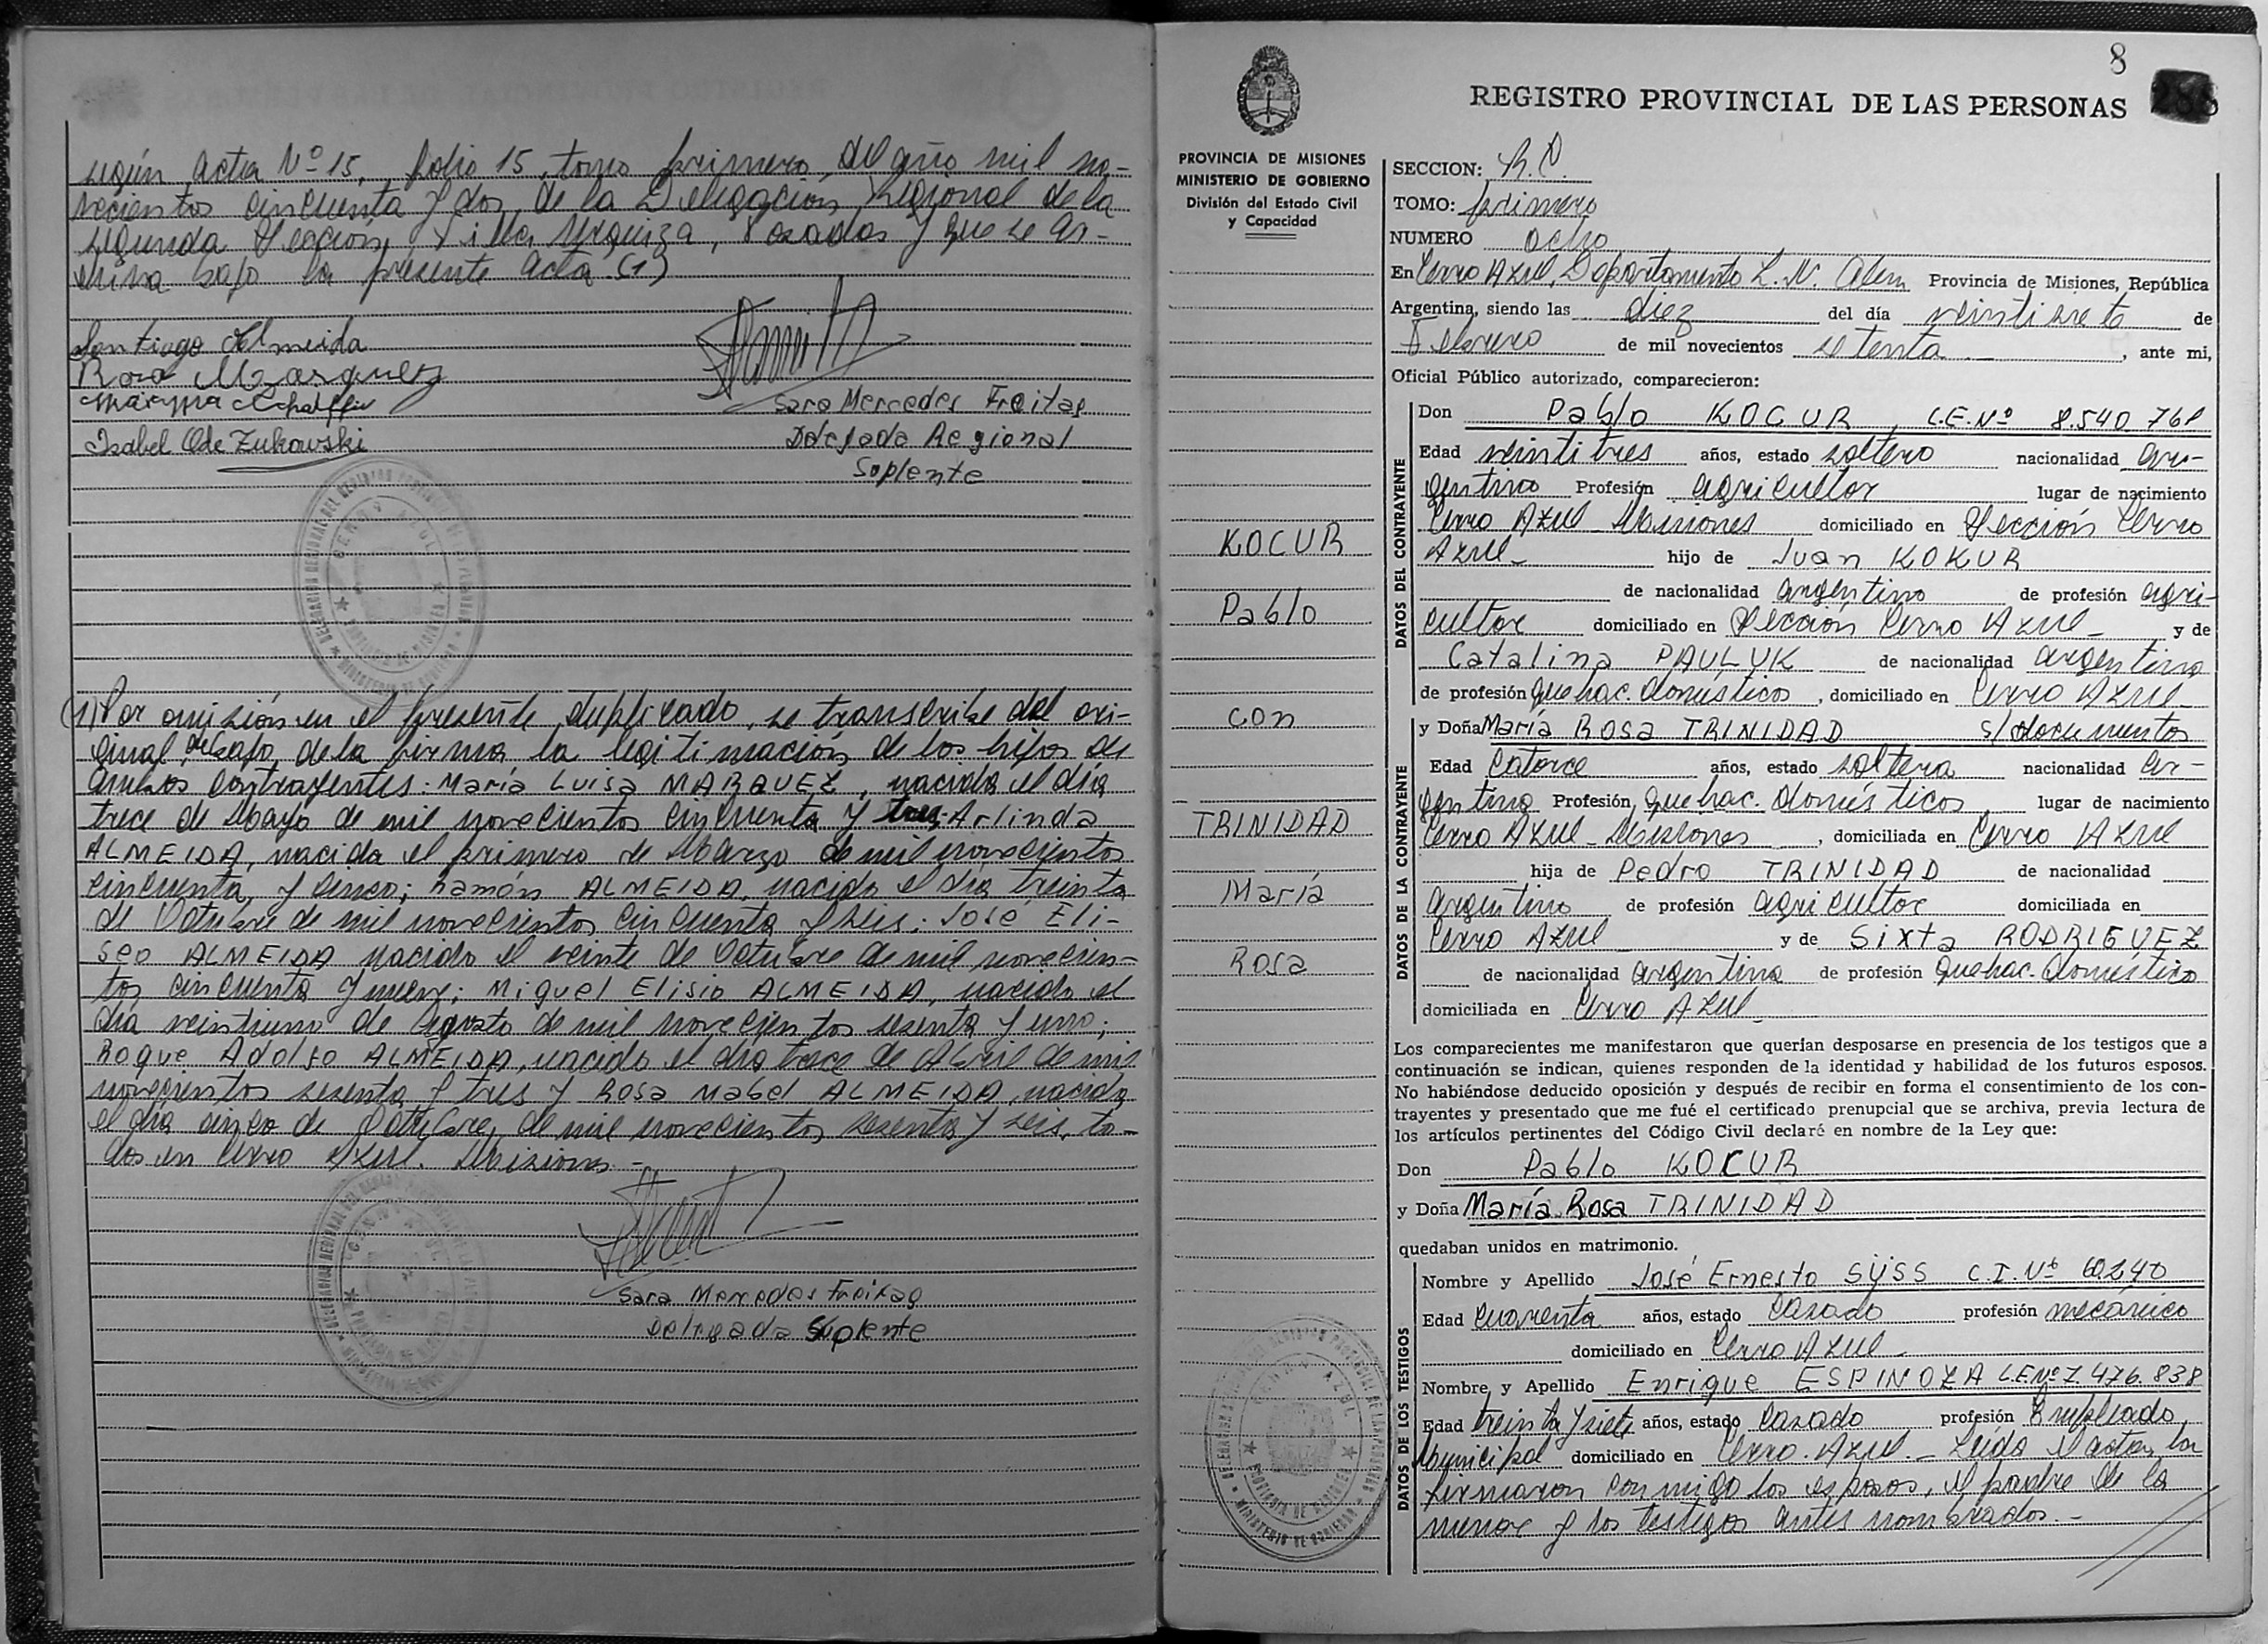 según Acta Nº 15, folio 15, tomo primero, del año mil no-
vecientos cincuenta y dos, de la Delegación Regional de la
segunda Sección, Villa Urquiza, Posadas y que se ar-
chiva bajo la presente Acta. (1)
Santiago Almeida
Rosa Marquez
Sara Mercedes Freitag
Isabel O de Zukowski
Delegada Regional
Suplente
(1) Por omisión en el presente duplicado, se transcribe del ori-
ginal, debajo de la firma la legitimación de los hijos de
ambos contrayentes: María Luisa MARQUEZ, nacida el día
trece de Mayo de mil novecientos cincuenta y tres. Arlinda
ALMEIDA, nacida el primero de Marzo de mil novecientos
cincuenta y cinco; Ramón ALMEIDA, nacido el día treinta
de Octubre de mil novecientos cincuenta y seis; José Eli-
seo ALMEIDA nacido el veinte de Octubre de mil novecien-
tos cincuenta y nueve; Miguel Elisio ALMEIDA, nacido el
día veintiuno de Agosto de mil novecientos sesenta y uno;
Roque Adolfo ALMEIDA, nacido el día trece de Abril de mil
novecientos sesenta y tres y Rosa Mabel ALMEIDA, nacida
el día cinco de Octubre, de mil novecientos sesenta y seis, to-
dos en Cerro Azul. Misiones -
Sara Mercedes Freitag
Delegada Suplente
8
REGISTRO PROVINCIAL DE LAS PERSONAS
PROVINCIA DE MISIONES
MINISTERIO DE GOBIERNO
División del Estado Civil
y Capacidad
KOCUR
Pablo
con
TRINIDAD
María
Rosa
SECCION:
TOMO: primero
NUMERO ocho
En Cerro Azul, Departamento L. N. Alem Provincia de Misiones, República
Argentina, siendo las diez del día veintisiete de
Febrero de mil novecientos setenta - , ante mi,
Oficial Público autorizado, comparecieron:
DATOS DEL CONTRAYENTE
Don Pablo KOCUR, L.E. Nº 8.540.768
Edad veintitres años, estado soltero nacionalidad ar-
gentino Profesión agricultor lugar de nacimiento
Cerro Azul Misiones domiciliado en Sección Cerro
Azul - hijo de Juan KOKUR
de nacionalidad argentino de profesión agri-
cultor domiciliado en Sección Cerro Azul - y de
Catalina PAULUK de nacionalidad argentina
de profesión quehac. domésticos, domiciliado en Cerro Azul -
DATOS DE LA CONTRAYENTE
y Doña María Rosa TRINIDAD s/documentos
Edad catorce años, estado soltera nacionalidad ar-
gentina Profesión quehac. domésticos lugar de nacimiento
Cerro Azul - Misiones, domiciliada en Cerro Azul
hija de Pedro TRINIDAD de nacionalidad
argentino de profesión agricultor domiciliada en
Cerro Azul y de Sixta RODRIGUEZ
de nacionalidad argentina de profesión quehac. doméstico
domiciliada en Cerro Azul -
Los comparecientes me manifestaron que querían desposarse en presencia de los testigos que a
continuación se indican, quienes responden de la identidad y habilidad de los futuros esposos.
No habiéndose deducido oposición y después de recibir en forma el consentimiento de los con-
trayentes y presentado que me fué el certificado prenupcial que se archiva, previa lectura de
los artículos pertinentes del Código Civil declaré en nombre de la Ley que:
Don Pablo KOCUR
y Doña María Rosa TRINIDAD
quedaban unidos en matrimonio.
DATOS DE LOS TESTIGOS
Nombre y Apellido José Ernesto SÜSS C.I. Nº 60.240
Edad cuarenta años, estado casado profesión mecánico
domiciliado en Cerro Azul -
Nombre y Apellido Enrique ESPINOZA L.E. Nº 7.476.838
Edad treinta y siete años, estado casado profesión Empleado
Municipal domiciliado en Cerro Azul. - Leída el acta, la
firmaron conmigo los esposos, el padre de la
menor y los testigos antes nombrados. -